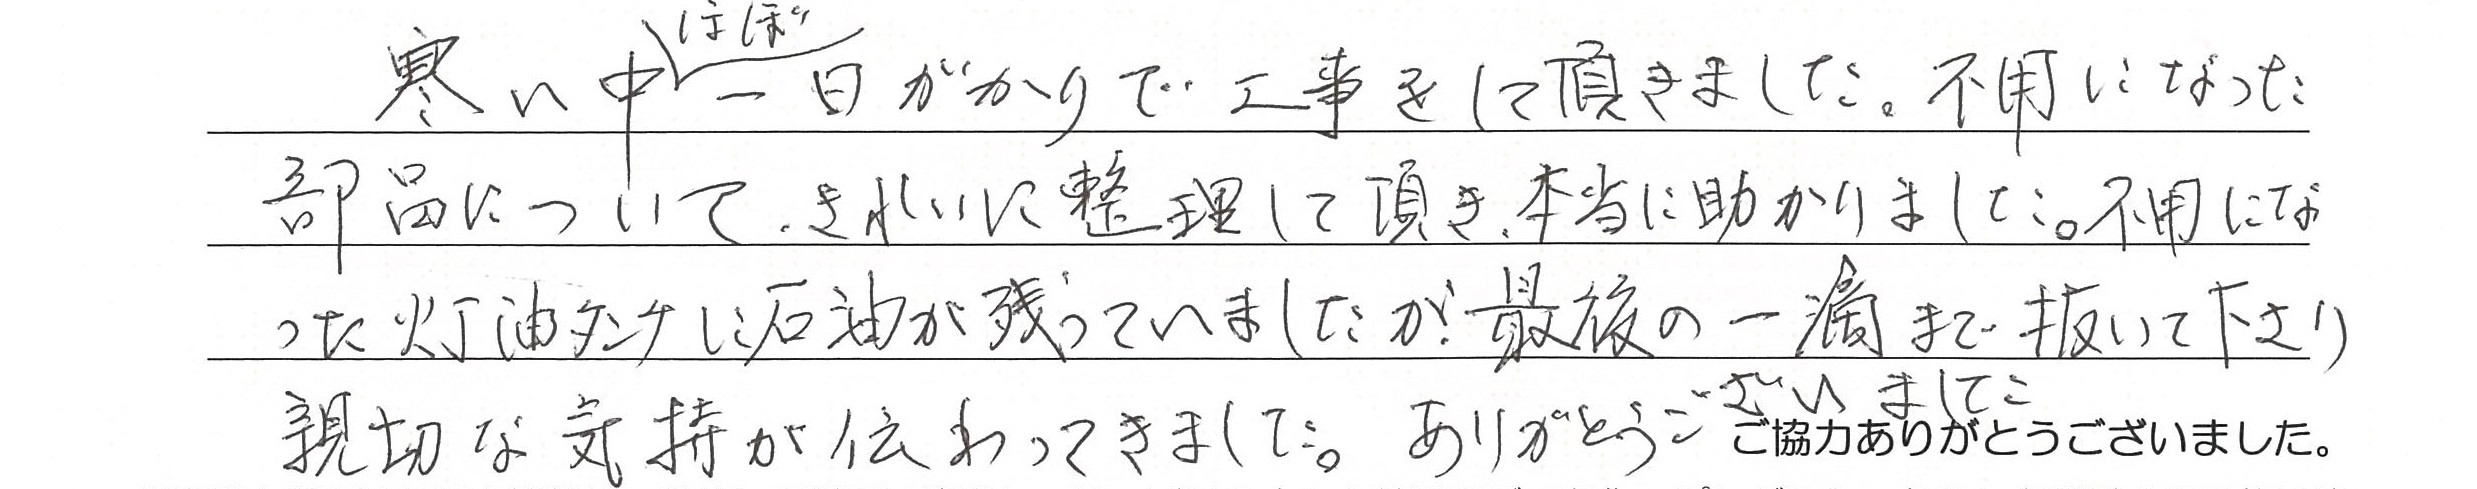 寒い中ほぼ一日がかりで工事をして頂きました。不用になった
部品について、きれいに整理して頂き、本当に助かりました。不用にな
った灯油タンクに石油が残っていましたが、最後の一滴まで抜いて下さり
親切な気持が伝わってきました。ありがとうございました
ご協力ありがとうございました。